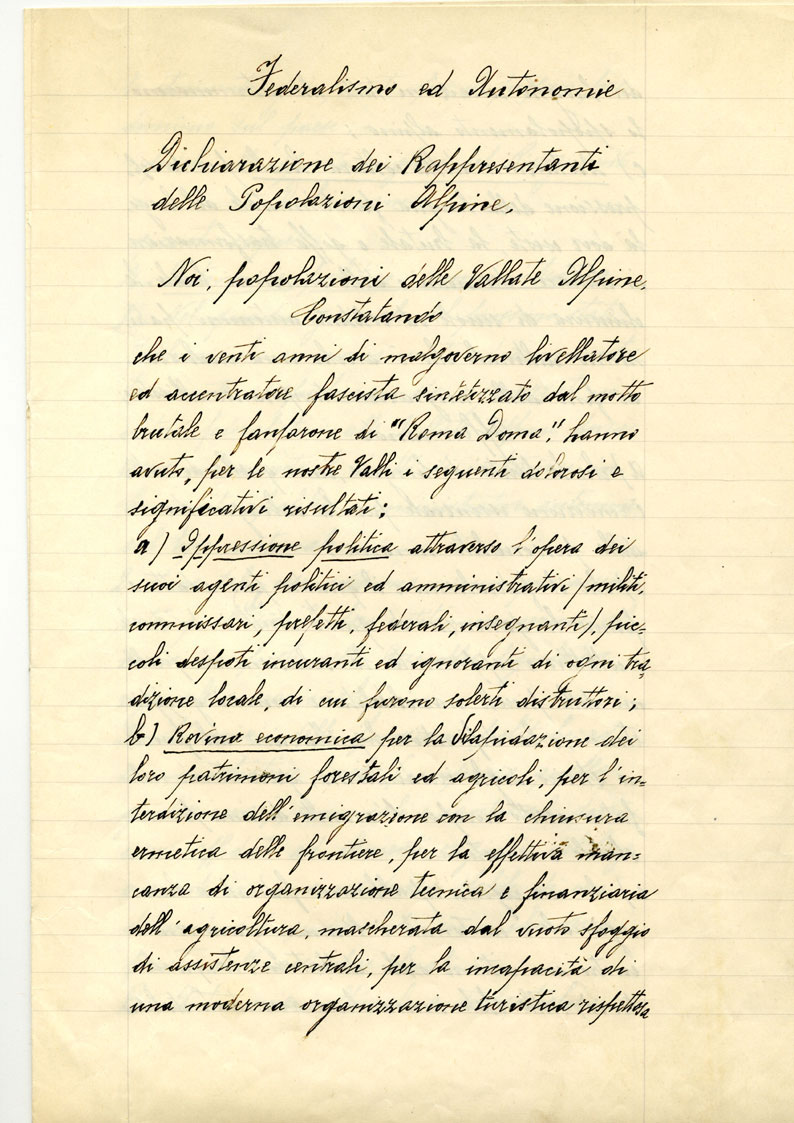 Federalismo ed Autonomie
Dichiarazione dei Rappresentanti
delle Popolazioni Alpine.
Noi, popolazioni delle Vallate Alpine,
Constatando
che i venti anni di malgoverno livellatore
ed accentratore fascista sintetizzato dal motto
brutale e fanfarone di "Roma Doma", hanno
avuto, per le nostre Valli i seguenti dolorosi e
significativi risultati:
a) Oppressione politica attraverso l'opera dei
suoi agenti politici ed amministrativi (militi,
commissari, prefetti, federali, insegnanti), pic=
coli despoti incuranti ed ignoranti di ogni tra=
dizione locale, di cui furono solerti distruttori;
b) Rovina economica per la dilapidazione dei
loro patrimoni forestali ed agricoli, per l'in=
terdizione dell'emigrazione con la chiusura
ermetica delle frontiere, per la effettiva man=
canza di organizzazione tecnica e finanziaria
dell'agricoltura, mascherata dal vuoto sfoggio
di assistenze centrali, per la incapacità di
una moderna organizzazione turistica rispettosa